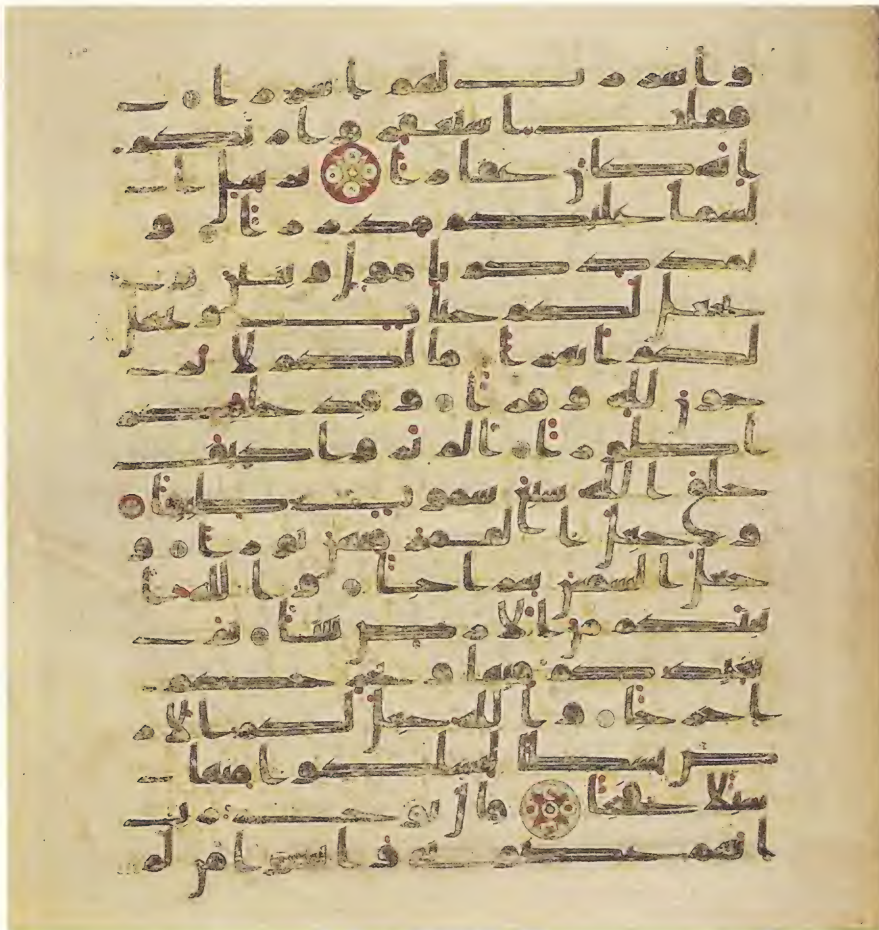 و اسررت لهم اسرارا
فقلت استغفروا ربكم
انه كان غفارا يرسل ا
لسما عليكم مدرارا و
يمددكم بامول وبنين و
يجعل لكم جنت ويجعل
لكم انهرا ما لكم لا تر
جون لله وقارا وقد خلقكم
اطوارا الم تروا كيف
خلق الله سبع سموت طباقا
وجعل القمر فيهن نورا و
جعل الشمس سراجا والله ا
نبتكم من الار ض نباتا ثم
يعيدكم فيها ويخرجكم
اخراجا والله جعل لكم الار
ض بساطا لتسلكوا منها
سبلا فجاجا قال نوح رب
انهم عصوني واتبعوا من لم